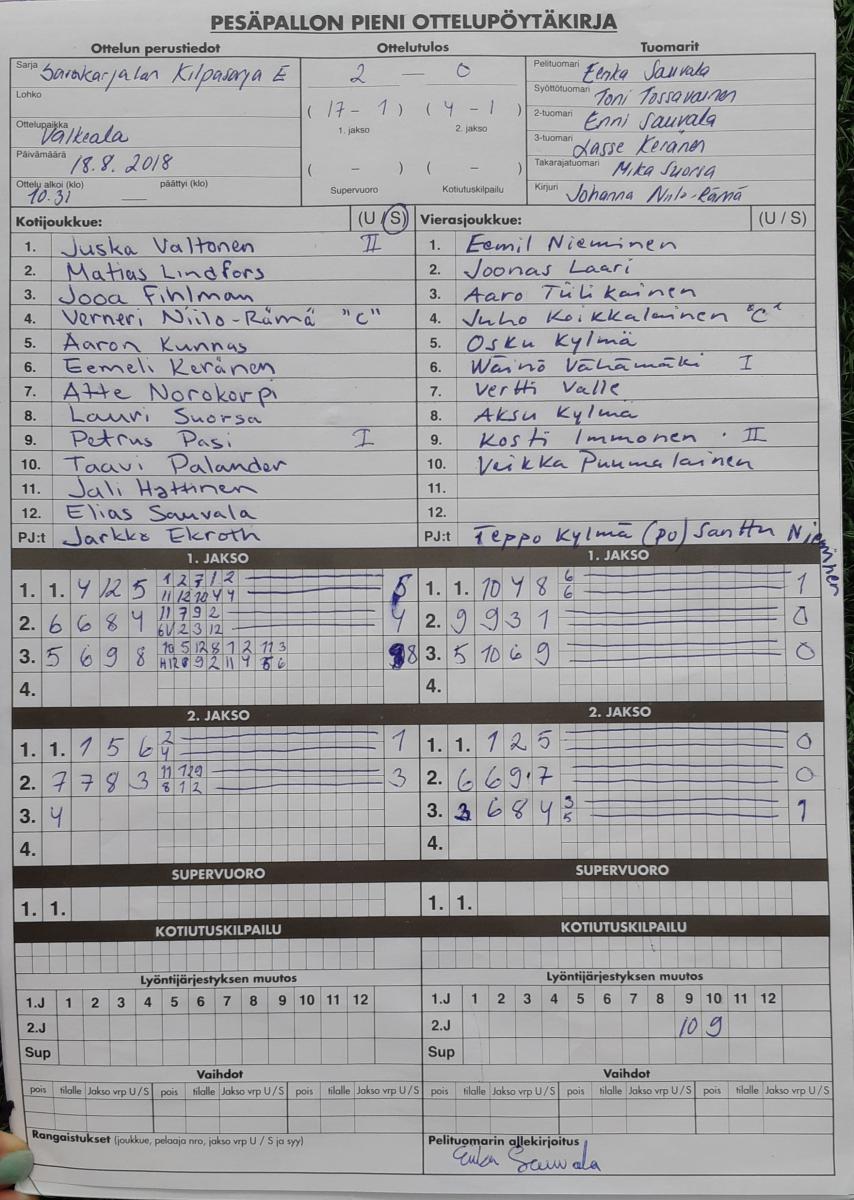 PESÄPALLON PIENI OTTELUPÖYTÄKIRJA
Ottelun perustiedot
Ottelutulos
Tuomarit
Sarja Savokarjalan Kilpasarja E
2 — 0
Pelituomari Eerika Sauvala
Lohko
Syöttötuomari Toni Tossavainen
Ottelupaikka Valkeala
( 17 - 1 ) ( 4 - 1 )
1. jakso 2. jakso
2-tuomari Enni Sauvala
3-tuomari Lasse Keränen
Päivämäärä 18.8.2018
( - ) ( - )
Takarajatuomari Mika Suorsa
Ottelu alkoi (klo) 10.31 — päättyi (klo)
Supervuoro Kotiutuskilpailu
Kirjuri Johanna Niilo-Rämä
Kotijoukkue: (U / S)
1. Juska Valtonen II
2. Matias Lindfors
3. Jooa Fihlman
4. Verneri Niilo-Rämä "C"
5. Aaron Kunnas
6. Eemeli Keränen
7. Atte Norokorpi
8. Lauri Suorsa
9. Petrus Pasi I
10. Taavi Palander
11. Jali Hattinen
12. Elias Sauvala
PJ:t Jarkko Ekroth
Vierasjoukkue: (U / S)
1. Eemil Nieminen
2. Joonas Laari
3. Aaro Tulikainen
4. Juho Koikkalainen "C"
5. Osku Kylmä
6. Wäinö Vähämäki I
7. Vertti Valle
8. Aksu Kylmä
9. Kosti Immonen II
10. Veikka Puumalainen
11.
12.
PJ:t Teppo Kylmä (PO) Santtu Nieminen
1. JAKSO
1. 1. 4 12 5 1 2 7 1 2 5
11 12 10 4 4
2. 6 6 8 4 11 7 9 2 4
6V 2 3 12
3. 5 6 9 8 10 5 12 8 1 2 11 3 8
9 2 11 4 5 6
4.
1. JAKSO
1. 1. 10 4 8 6 1
6
2. 9 9 3 1 0
3. 5 10 6 9 0
4.
2. JAKSO
1. 1. 1 5 6 2 1
4
2. 7 7 8 3 11 12 9 3
8 1 2
3. 4
4.
2. JAKSO
1. 1. 1 2 5 0
2. 6 6 9 7 0
3. 3 6 8 4 3 1
5
4.
SUPERVUORO
1. 1.
SUPERVUORO
1. 1.
KOTIUTUSKILPAILU
KOTIUTUSKILPAILU
Lyöntijärjestyksen muutos
1.J 1 2 3 4 5 6 7 8 9 10 11 12
2.J
Sup
Lyöntijärjestyksen muutos
1.J 1 2 3 4 5 6 7 8 9 10 11 12
2.J 10 9
Sup
Vaihdot
pois tilalle Jakso vrp U / S pois tilalle Jakso vrp U / S pois tilalle Jakso vrp U / S
Vaihdot
pois tilalle Jakso vrp U / S pois tilalle Jakso vrp U / S pois tilalle Jakso vrp U / S
Rangaistukset (joukkue, pelaaja nro, jakso vrp U / S ja syy)
Pelituomarin allekirjoitus
Sauvala